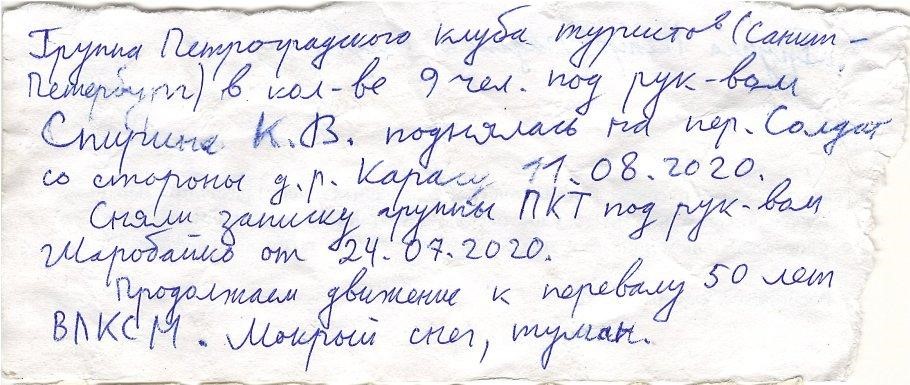 Группа Петроградского клуба туристов (Санкт-
Петербург) в кол-ве 9 чел. под рук-вом
Спирина К.В. поднялась на пер. Солдат
со стороны д.р. Карасу 11.08.2020.
Сняли записку группы ПКТ под рук-вом
Шаробайко от 24.07.2020.
Продолжаем движение к перевалу 50 лет
ВЛКСМ. Мокрый снег, туман.